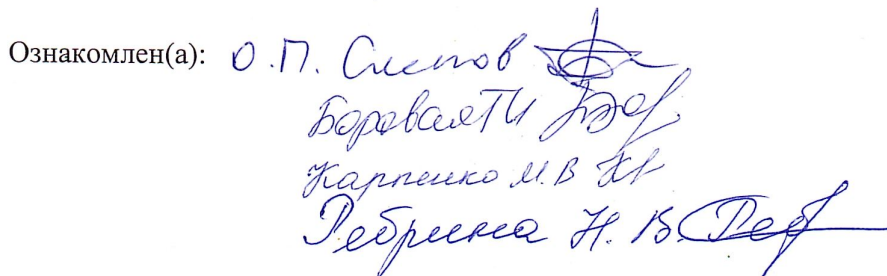 Ознакомлен(а): О.П. Слепов
Боровая Т И
Карпенко М.В
Ребрина Н.В.